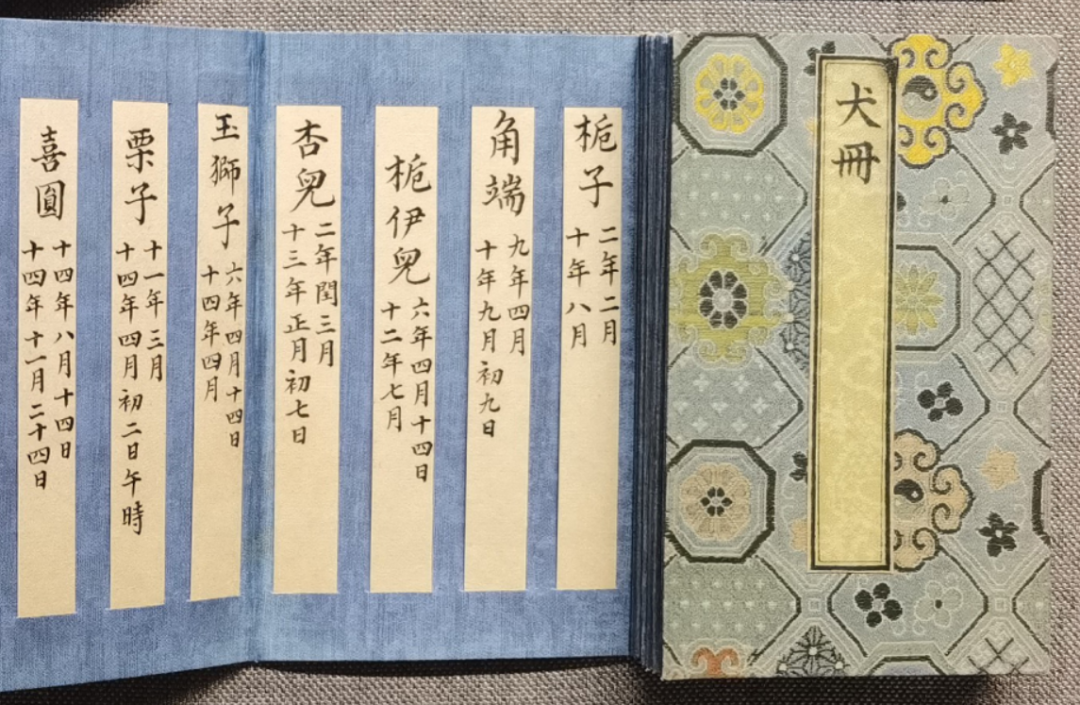 犬冊
栀子
二年二月
十年八月
角端
九年四月
十年九月初九日
栀伊兒
六年四月十四日
十二年七月
杏兒
二年閏三月
十三年正月初七日
玉獅子
六年四月十四日
十四年四月
栗子
十一年三月
十四年四月初二日午時
喜圓
十四年八月十四日
十四年十一月二十四日